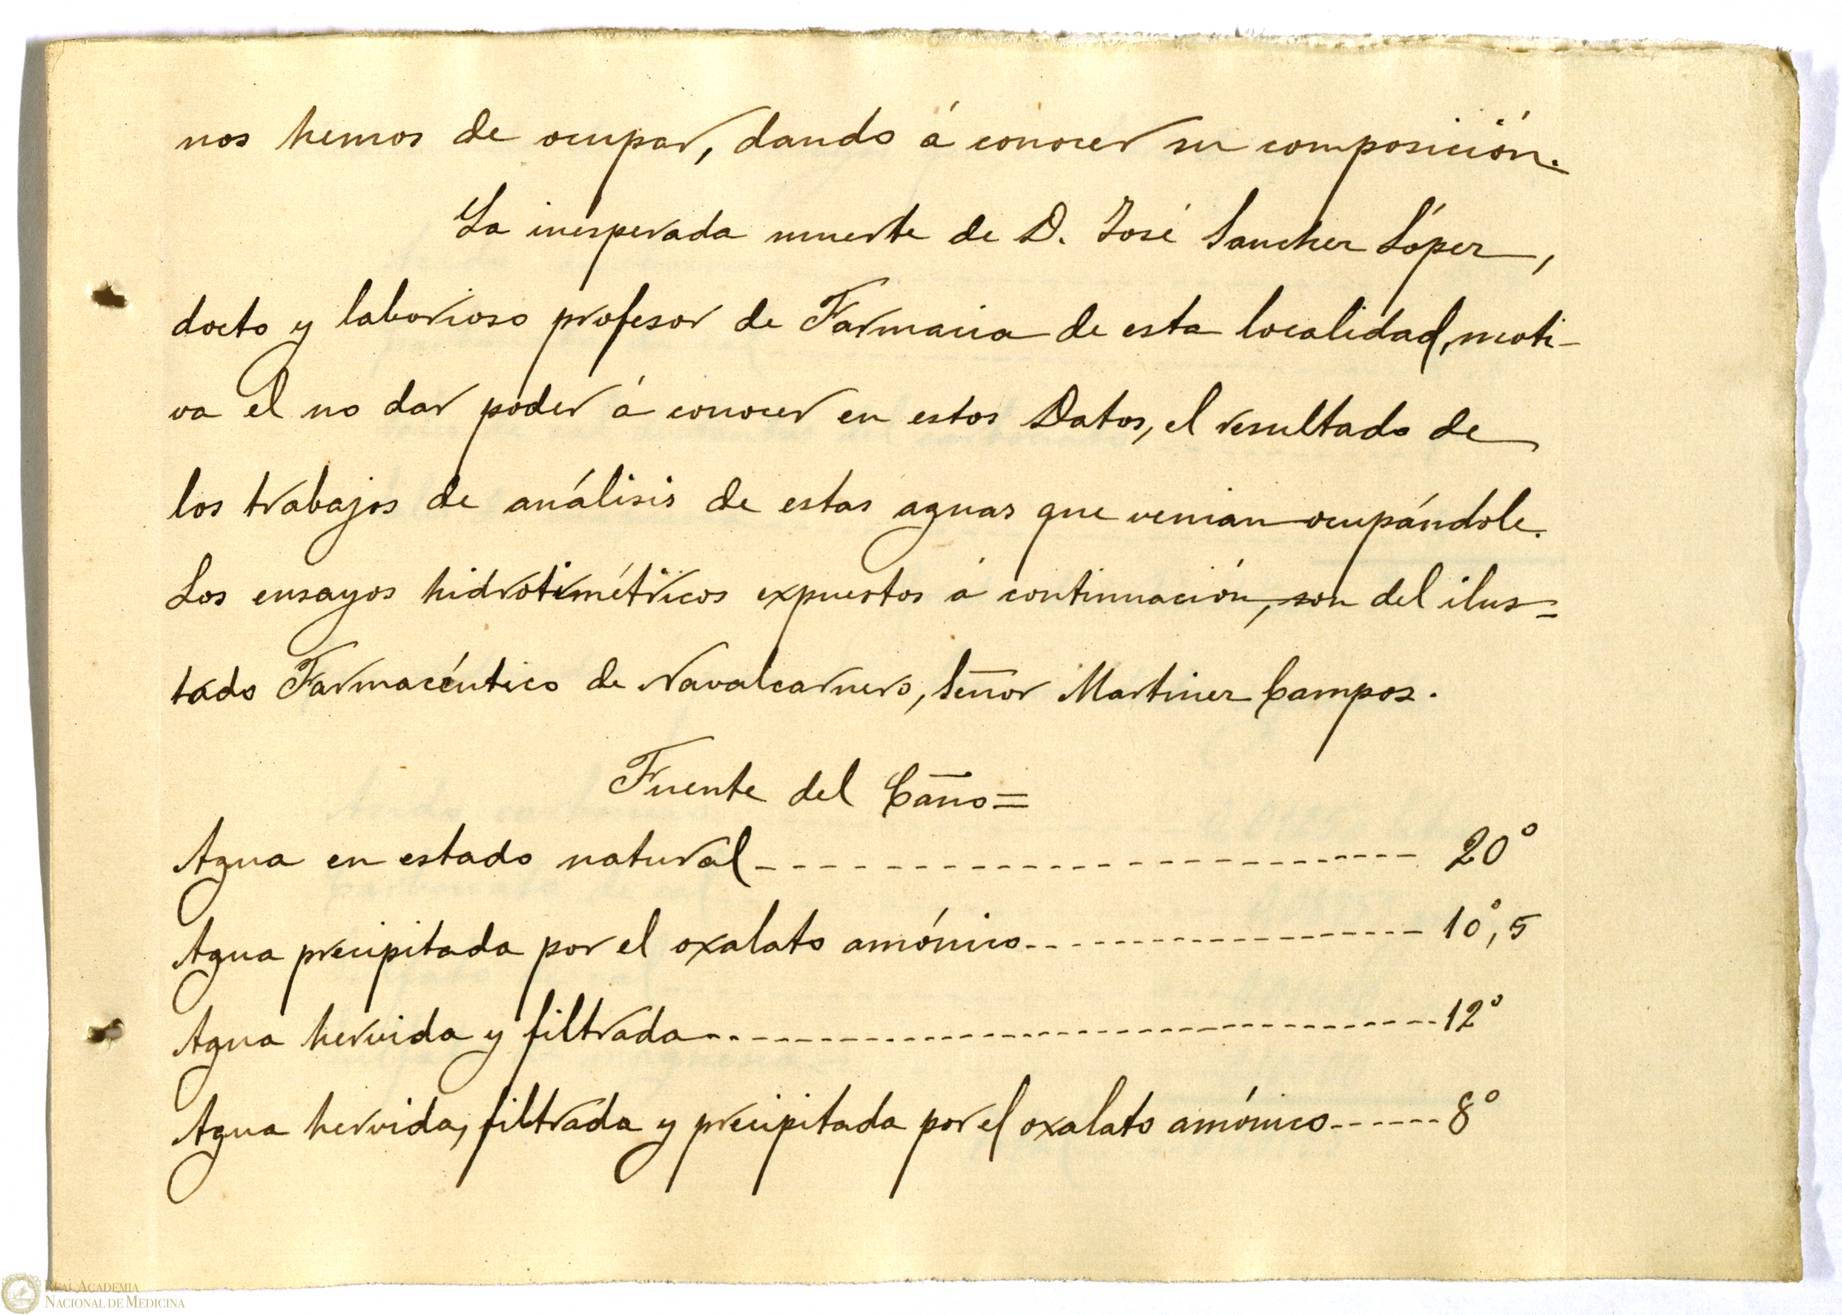 nos hemos de ocupar, dando á conocer su composición.
La inesperada muerte de D. José Sanchez López,
docto y laborioso profesor de Farmacia de esta localidad, moti-
va el no dar poder á conocer en estos Datos, el resultado de
los trabajos de análisis de estas aguas que venian ocupándole.
Los ensayos hidrotimétricos expuestos á continuación, son del ilus=
tado Farmacéutico de Navalcarnero, Señor Martinez Campos.
Fuente del Caño=
Agua en estado natural - - - - - - - - - - - - - - - - - - 20°
Agua precipitada por el oxalato amónico - - - - - - - - - - - - 10°,5
Agua hervida y filtrada - - - - - - - - - - - - - - - - - - 12°
Agua hervida, filtrada y precipitada por el oxalato amónico - - - - - - 8°
REAL ACADEMIA
NACIONAL DE MEDICINA